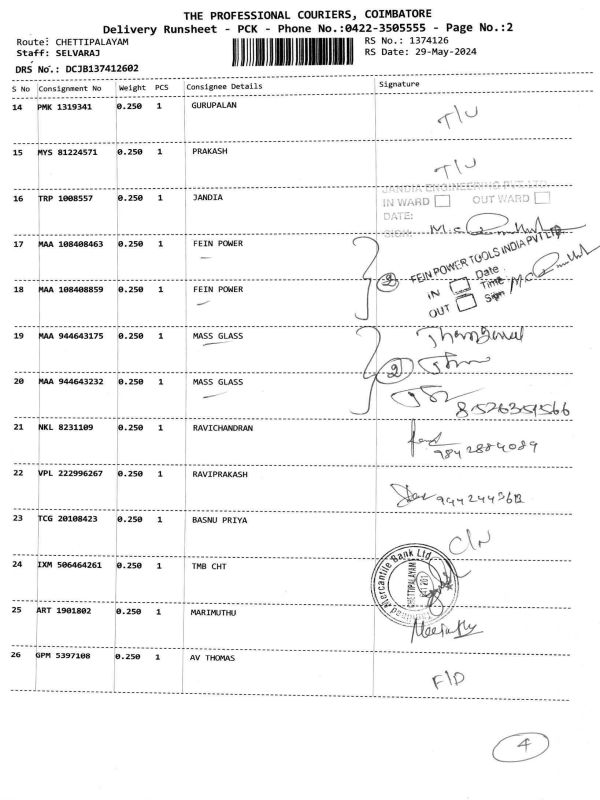 THE PROFESSIONAL COURIERS, COIMBATORE
Delivery Runsheet - PCK - Phone No.:0422-3505555 - Page No.:2
Route: CHETTIPALAYAM RS No.: 1374126
Staff: SELVARAJ RS Date: 29-May-2024
DRS No.: DCJB137412602
S No Consignment No Weight PCS Consignee Details Signature
14 PMK 1319341 0.250 1 GURUPALAN T/U
15 MYS 81224571 0.250 1 PRAKASH T/U
JANDIA ENGINEERING PVT LTD
16 TRP 1008557 0.250 1 JANDIA IN WARD OUT WARD
DATE:
SIGN:
17 MAA 108408463 0.250 1 FEIN POWER
FEIN POWER TOOLS INDIA PVT LTD
2 IN Date
Time
18 MAA 108408859 0.250 1 FEIN POWER OUT Sign
19 MAA 944643175 0.250 1 MASS GLASS
2
20 MAA 944643232 0.250 1 MASS GLASS
8526351566
21 NKL 8231109 0.250 1 RAVICHANDRAN
9842884089
22 VPL 222996267 0.250 1 RAVIPRAKASH
23 TCG 20108423 0.250 1 BASNU PRIYA C/N
24 IXM 506464261 0.250 1 TMB CHT
Mercantile Bank Ltd.
CHETTIPALAYAM
25 ART 1901802 0.250 1 MARIMUTHU
26 GPM 5397108 0.250 1 AV THOMAS F/D
4